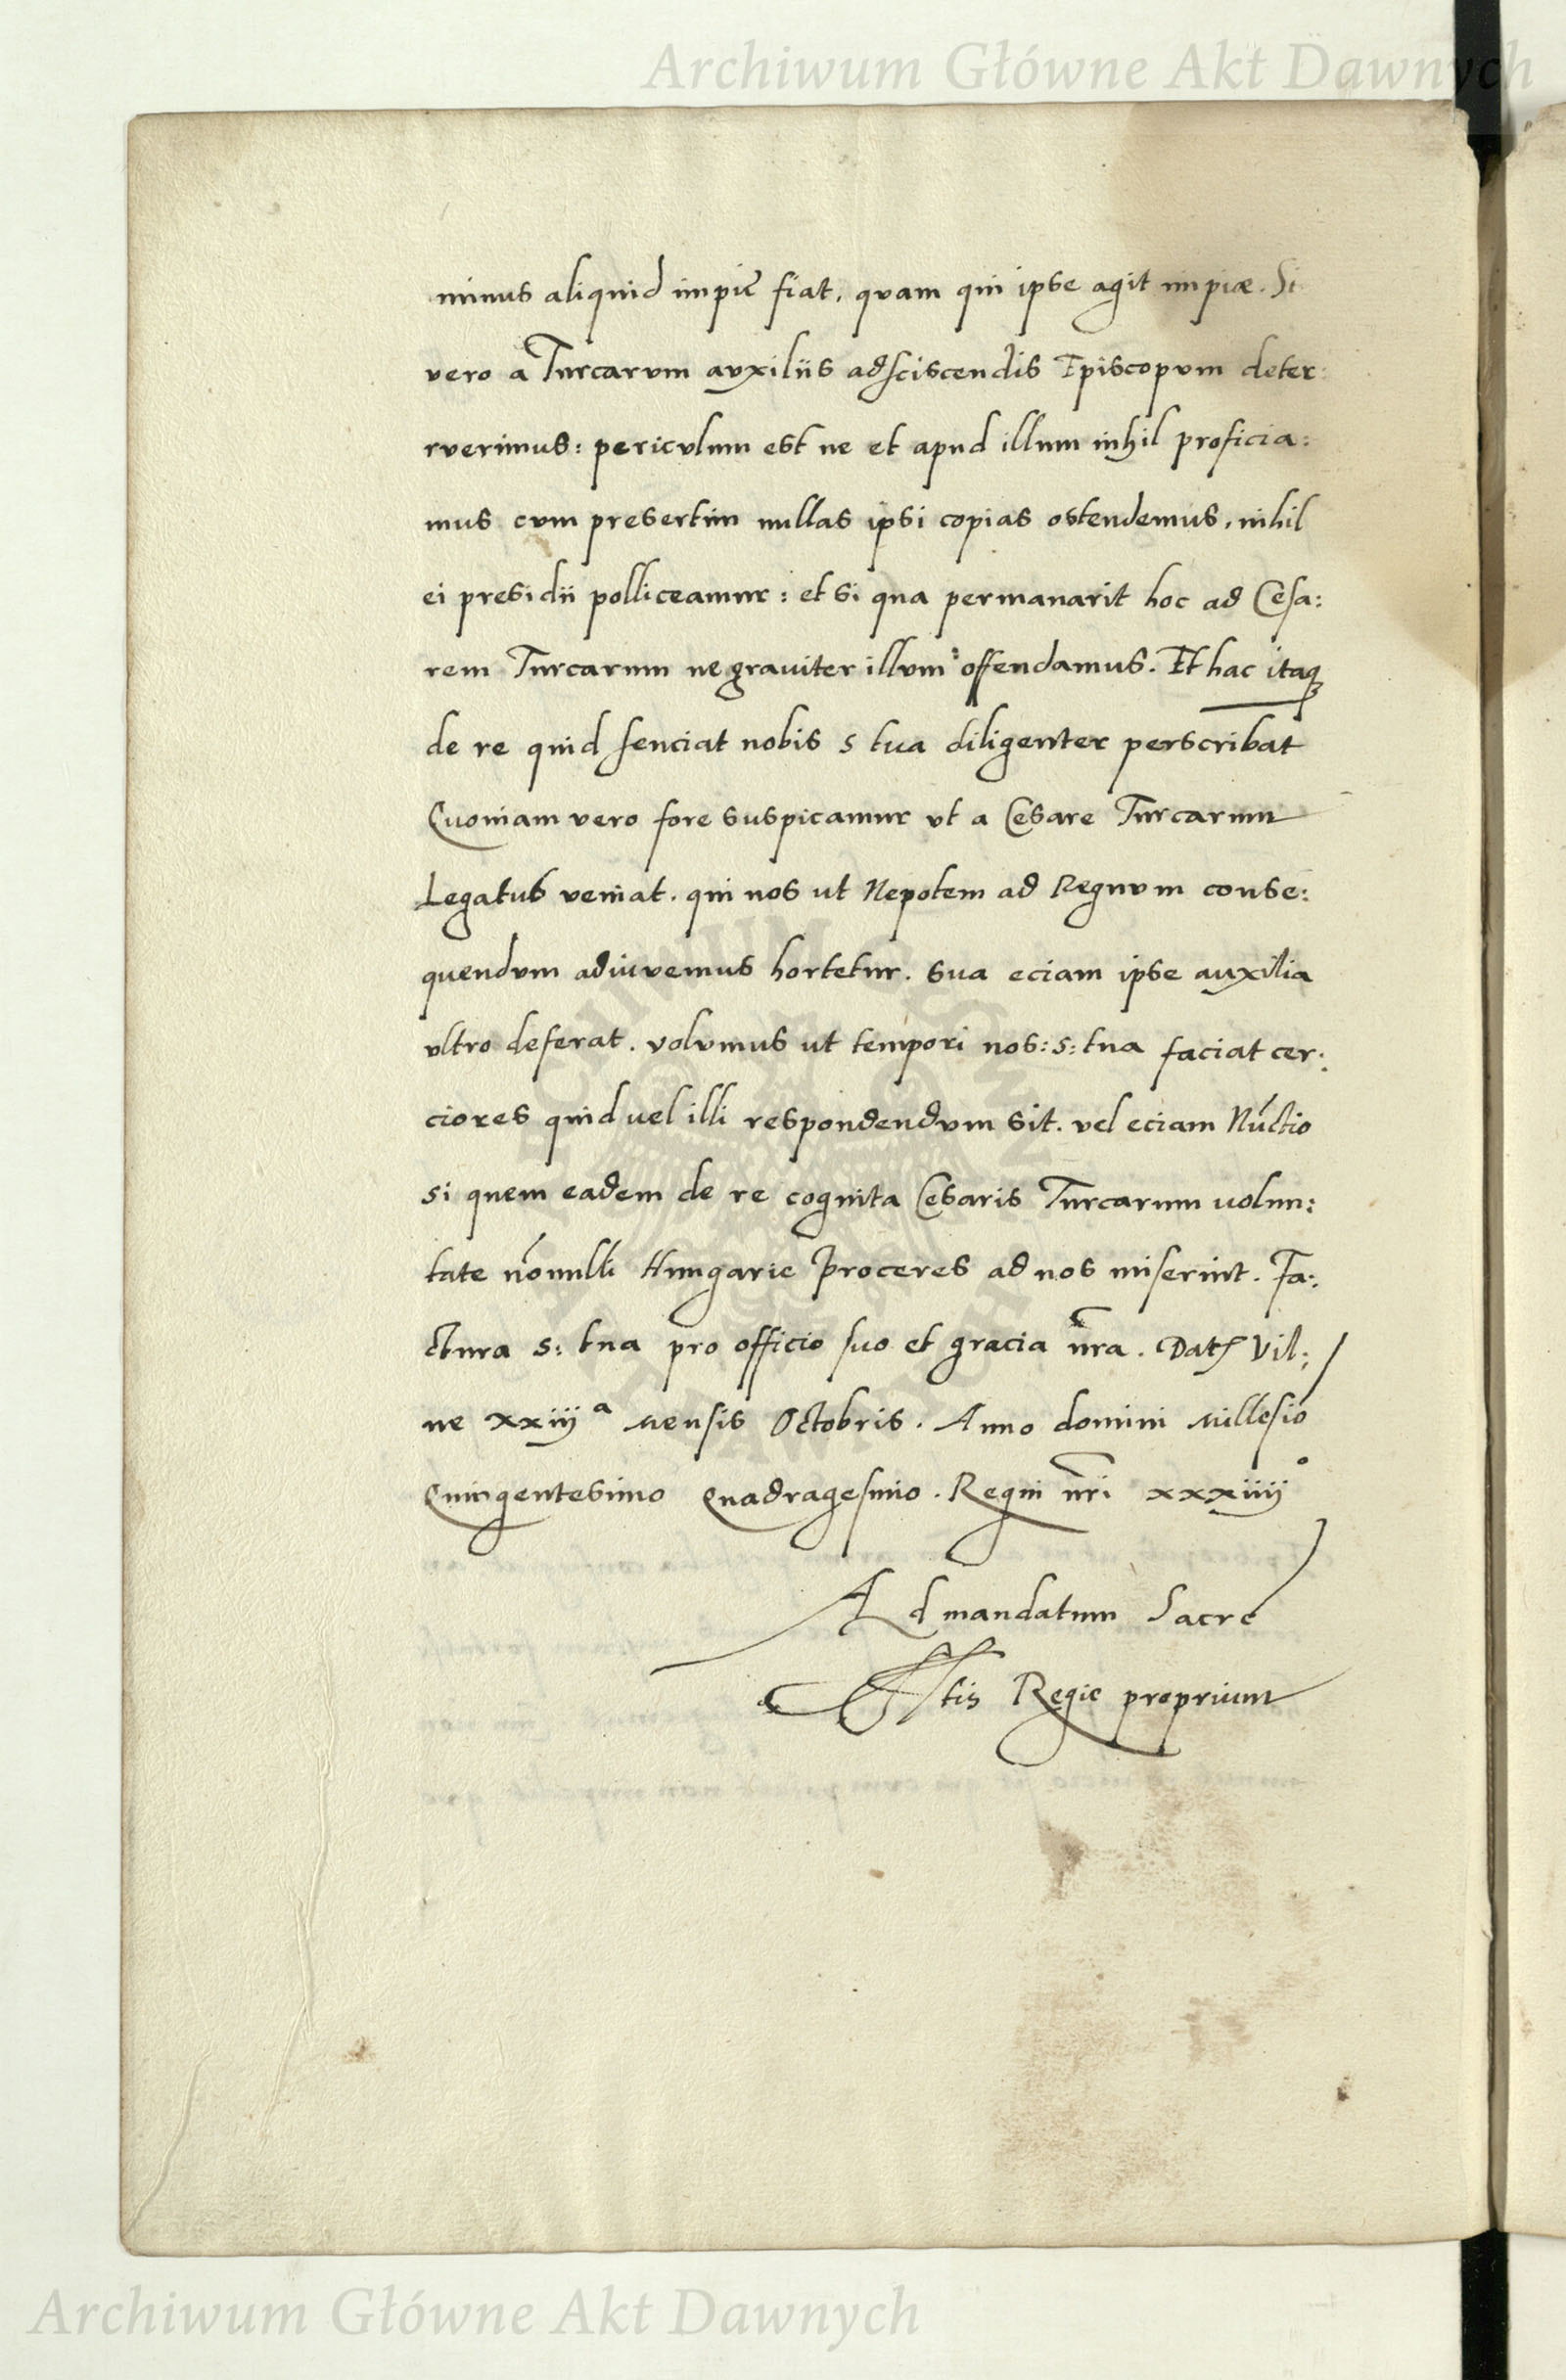 Archiwum Główne Akt Dawnych
minus aliquid impie fiat, quam qui ipse agit impiæ. Si
vero a Turcarvm avxiliis adsciscendis Episcopvm deter:
rverimus: pericvlum est ne et apud illum nihil proficia:
mus cvm presertim nullas ipsi copias ostendemus, nihil
ei presidii polliceamur: et si qua permanarit hoc ad Cesa:
rem Turcarum ne grauiter illvm offendamus. Et hac itaq
de re quid senciat nobis s tua diligenter perscribat
Qvoniam vero fore suspicamur vt a Cesare Turcarum
Legatus veniat. qui nos ut Nepotem ad Regnvm conse:
quendvm adiuvemus hortetur. sua eciam ipse auxilia
vltro deferat. volvmus ut tempori nos: s: tua faciat cer:
ciores quid uel illi respondendvm sit. vel eciam Nuctio
si quem eadem de re cognita Cesaris Turcarum uolun:
tate nõnulli Hungarie Proceres ad nos miserint. Fa:
ctura s: tua pro officio suo et gracia nra. Dat Vil:
ne xxiij a mensis Octobris. Anno domini millesio
Quingentesimo Quadragesimo. Regni nri xxxiiij o
Ad mandatum Sacre
Mtis Regie proprium
Archiwum Główne Akt Dawnych